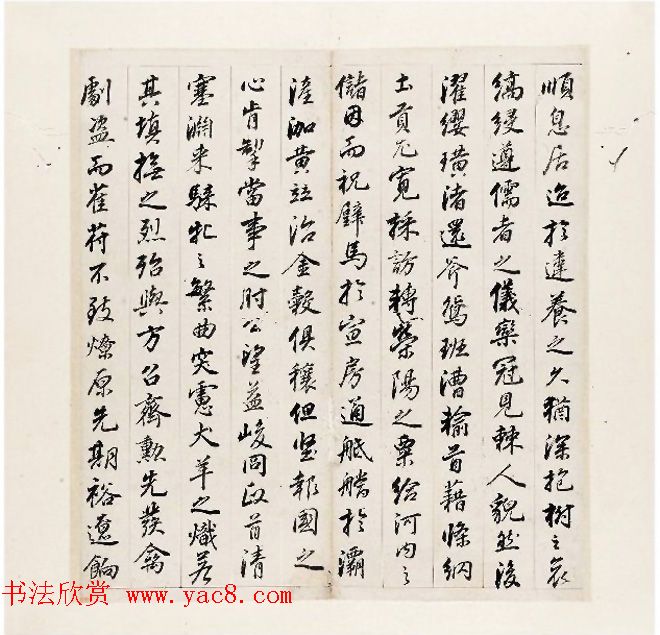 順息居迨於違養之久猶深抱樹之哀
縞綬遵儒者之儀欒冠見棘人貌然後
濯纓璜渚還斧鵷班漕輸首藉條納
土貢尤寬採訪轉滎陽之粟給河內之
儲因而祝璧馬於宣房通舳艫於灞
滻泇黃竝治金穀俱穰但堅報國之
心肯掣當事之肘公望益峻冏政首清
塞淵來騋牝之繁曲突慮犬羊之熾若
其填撫之烈殆與方召齊勳先發禽
劇盜而萑苻不致燎原先期裕邊餉
书法欣赏 www.yac8.com